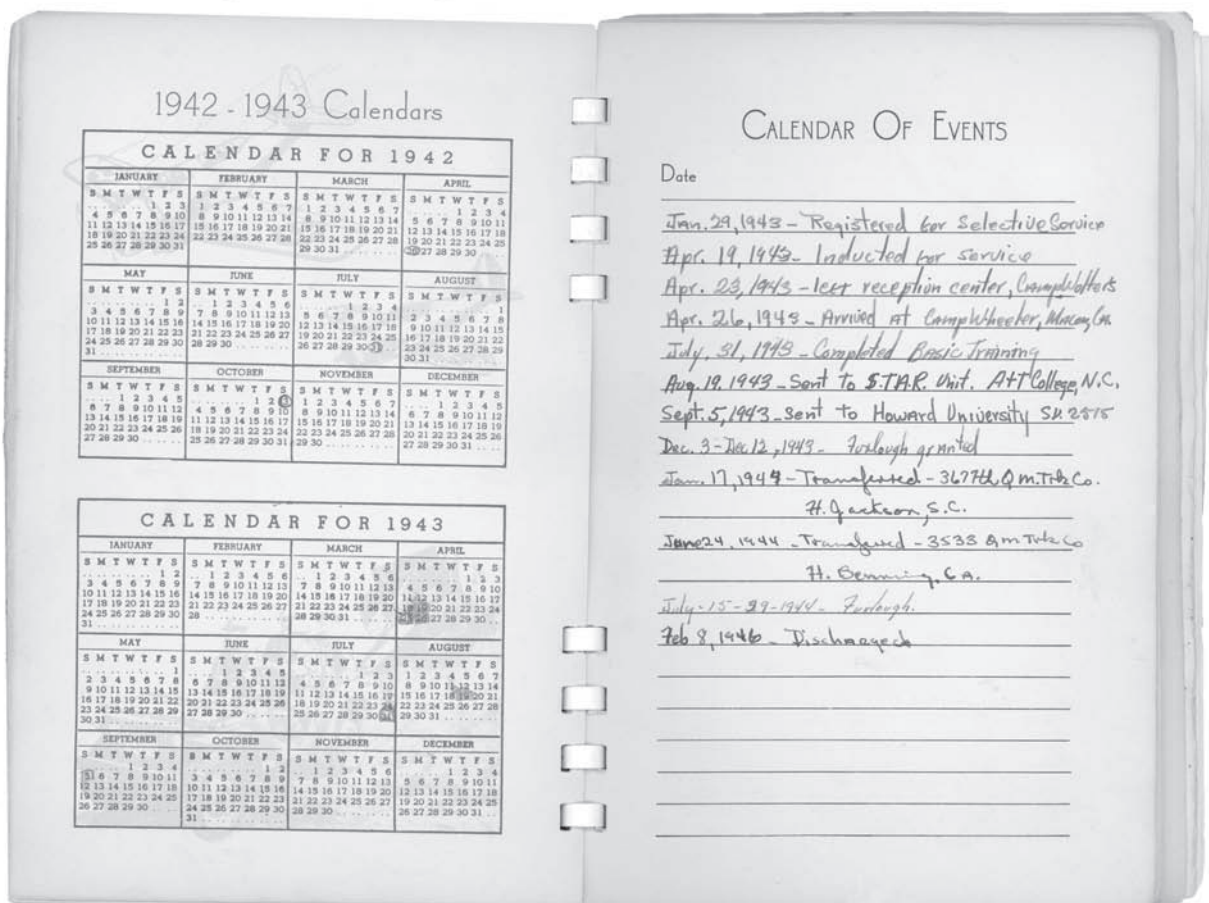 1942 - 1943 Calendars
CALENDAR FOR 1942
JANUARY
S M T W T F S
1 2 3
4 5 6 7 8 9 10
11 12 13 14 15 16 17
18 19 20 21 22 23 24
25 26 27 28 29 30 31
FEBRUARY
S M T W T F S
1 2 3 4 5 6 7
8 9 10 11 12 13 14
15 16 17 18 19 20 21
22 23 24 25 26 27 28
MARCH
S M T W T F S
1 2 3 4 5 6 7
8 9 10 11 12 13 14
15 16 17 18 19 20 21
22 23 24 25 26 27 28
29 30 31
APRIL
S M T W T F S
1 2 3 4
5 6 7 8 9 10 11
12 13 14 15 16 17 18
19 20 21 22 23 24 25
26 27 28 29 30
MAY
S M T W T F S
1 2
3 4 5 6 7 8 9
10 11 12 13 14 15 16
17 18 19 20 21 22 23
24 25 26 27 28 29 30
31
JUNE
S M T W T F S
1 2 3 4 5 6
7 8 9 10 11 12 13
14 15 16 17 18 19 20
21 22 23 24 25 26 27
28 29 30
JULY
S M T W T F S
1 2 3 4
5 6 7 8 9 10 11
12 13 14 15 16 17 18
19 20 21 22 23 24 25
26 27 28 29 30 31
AUGUST
S M T W T F S
1
2 3 4 5 6 7 8
9 10 11 12 13 14 15
16 17 18 19 20 21 22
23 24 25 26 27 28 29
30 31
SEPTEMBER
S M T W T F S
1 2 3 4 5
6 7 8 9 10 11 12
13 14 15 16 17 18 19
20 21 22 23 24 25 26
27 28 29 30
OCTOBER
S M T W T F S
1 2 3
4 5 6 7 8 9 10
11 12 13 14 15 16 17
18 19 20 21 22 23 24
25 26 27 28 29 30 31
NOVEMBER
S M T W T F S
1 2 3 4 5 6 7
8 9 10 11 12 13 14
15 16 17 18 19 20 21
22 23 24 25 26 27 28
29 30
DECEMBER
S M T W T F S
1 2 3 4 5
6 7 8 9 10 11 12
13 14 15 16 17 18 19
20 21 22 23 24 25 26
27 28 29 30 31
CALENDAR FOR 1943
JANUARY
S M T W T F S
1 2
3 4 5 6 7 8 9
10 11 12 13 14 15 16
17 18 19 20 21 22 23
24 25 26 27 28 29 30
31
FEBRUARY
S M T W T F S
1 2 3 4 5 6
7 8 9 10 11 12 13
14 15 16 17 18 19 20
21 22 23 24 25 26 27
28
MARCH
S M T W T F S
1 2 3 4 5 6
7 8 9 10 11 12 13
14 15 16 17 18 19 20
21 22 23 24 25 26 27
28 29 30 31
APRIL
S M T W T F S
1 2 3
4 5 6 7 8 9 10
11 12 13 14 15 16 17
18 19 20 21 22 23 24
25 26 27 28 29 30
MAY
S M T W T F S
1
2 3 4 5 6 7 8
9 10 11 12 13 14 15
16 17 18 19 20 21 22
23 24 25 26 27 28 29
30 31
JUNE
S M T W T F S
1 2 3 4 5
6 7 8 9 10 11 12
13 14 15 16 17 18 19
20 21 22 23 24 25 26
27 28 29 30
JULY
S M T W T F S
1 2 3
4 5 6 7 8 9 10
11 12 13 14 15 16 17
18 19 20 21 22 23 24
25 26 27 28 29 30 31
AUGUST
S M T W T F S
1 2 3 4 5 6 7
8 9 10 11 12 13 14
15 16 17 18 19 20 21
22 23 24 25 26 27 28
29 30 31
SEPTEMBER
S M T W T F S
1 2 3 4
5 6 7 8 9 10 11
12 13 14 15 16 17 18
19 20 21 22 23 24 25
26 27 28 29 30
OCTOBER
S M T W T F S
1 2
3 4 5 6 7 8 9
10 11 12 13 14 15 16
17 18 19 20 21 22 23
24 25 26 27 28 29 30
31
NOVEMBER
S M T W T F S
1 2 3 4 5 6
7 8 9 10 11 12 13
14 15 16 17 18 19 20
21 22 23 24 25 26 27
28 29 30
DECEMBER
S M T W T F S
1 2 3 4
5 6 7 8 9 10 11
12 13 14 15 16 17 18
19 20 21 22 23 24 25
26 27 28 29 30 31
CALENDAR OF EVENTS
Date
Jan. 29, 1943 - Registered for Selective Service
Apr. 19, 1943 - Inducted for service
Apr. 23, 1943 - left reception center, Camp Wolters
Apr. 26, 1943 - Arrived at Camp Wheeler, Macon, Ga.
July, 31, 1943 - Completed Basic Training
Aug. 19. 1943 - Sent to S.T.A.R. Unit. A+T College, N.C.
Sept. 5, 1943 - Sent to Howard University S.U. 2515
Dec. 3 - Dec 12, 1943 - Furlough granted
Jan. 17, 1944 - Transferred - 3677th Q m. Trk Co.
Ft. Jackson, S.C.
June 24, 1944 - Transferred - 3533 Q m Trk Co
Ft. Benning, GA.
July - 15 - 29 - 1944 - Furlough.
Feb 8, 1946 - Discharged